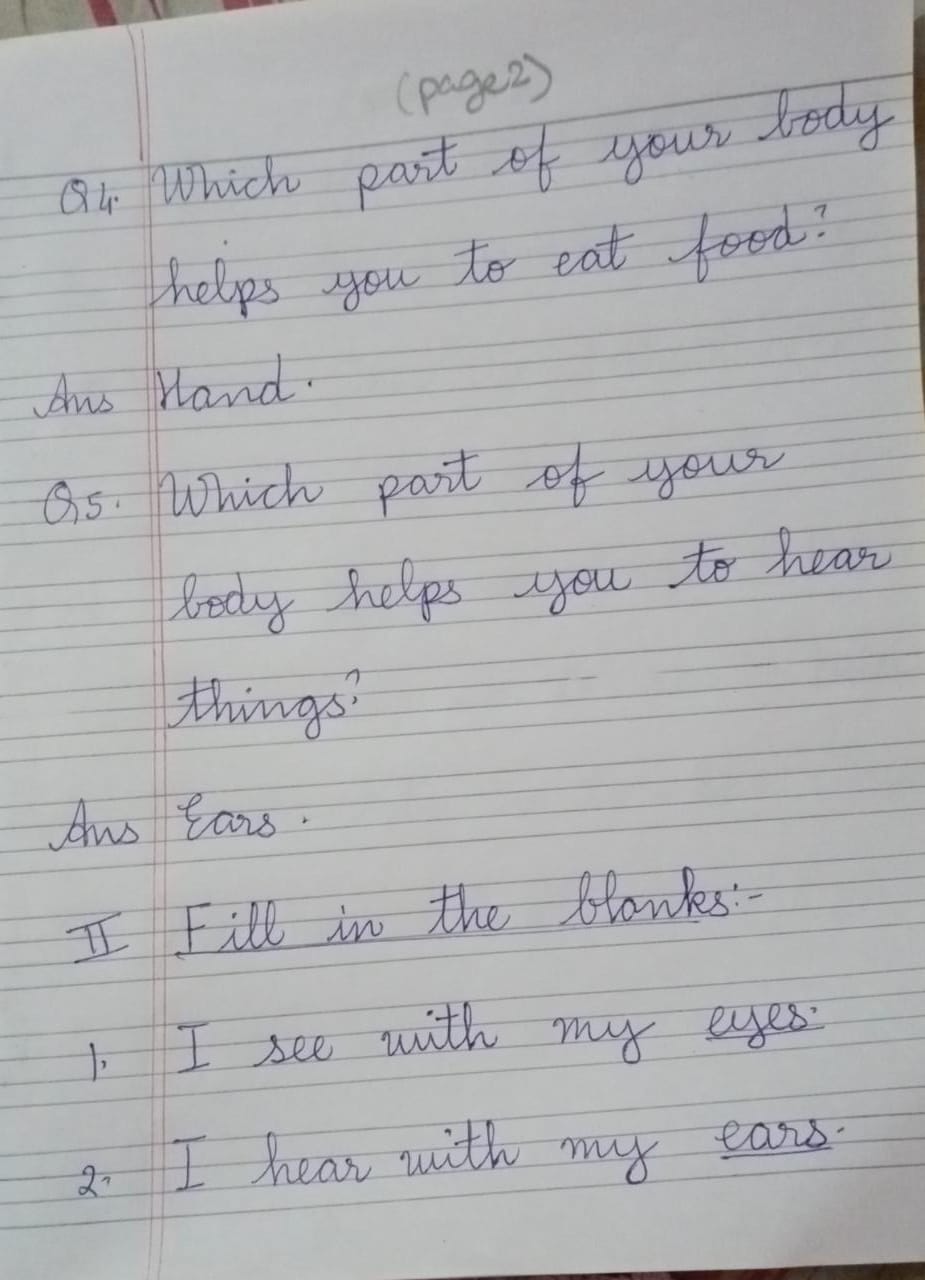 (page 2)
Q4. Which part of your body
helps you to eat food?
Ans Hand.
Q5. Which part of your
body helps you to hear
things?
Ans Ears.
II Fill in the blanks:-
1. I see with my eyes.
2. I hear with my ears.